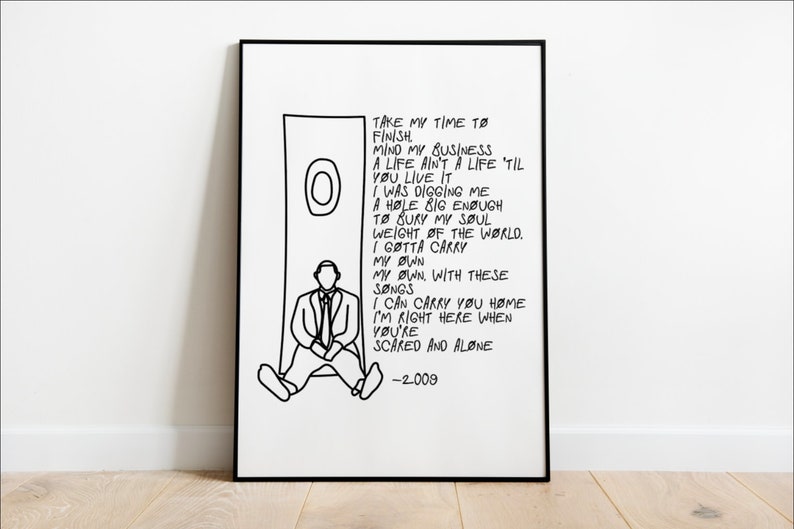 TAKE MY TIME TØ
FINISH,
MIND MY BUSINESS
A LIFE AIN'T A LIFE 'TIL
YØU LIVE IT
I WAS DIGGING ME
A HØLE BIG ENØUGH
TØ BURY MY SØUL
WEIGHT ØF THE WØRLD,
I GØTTA CARRY
MY ØWN
MY ØWN, WITH THESE
SØNGS
I CAN CARRY YØU HØME
I'M RIGHT HERE WHEN
YØU'RE
SCARED AND ALØNE
-2009